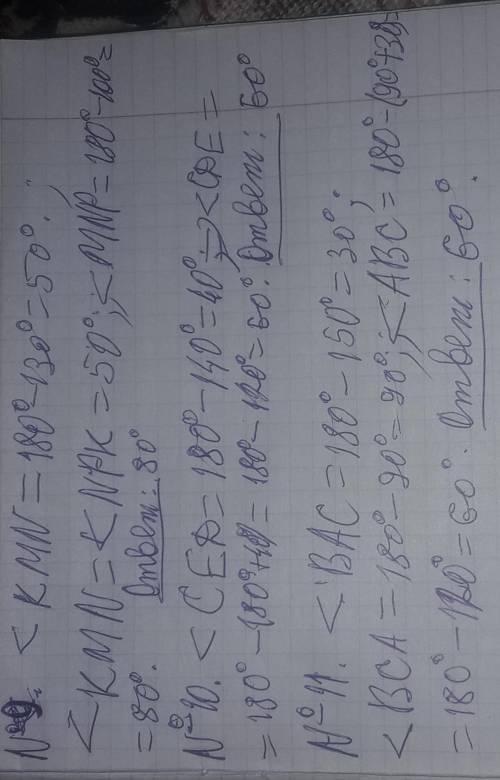 №9. <KMN=180°-130°=50°;
<KMN=<NPK=50°; <MNP=180°-100°=
=80°. Ответ: 80°
№10. <CED=180°-140°=40° => <CDE=
=180°-(80°+40)=180°-120°=60°. Ответ: 60°
№11. <BAC=180°-150°=30°;
<BCA=180°-90°=90°; <ABC=180°-(90°+30)-
=180°-120°=60°. Ответ: 60°.